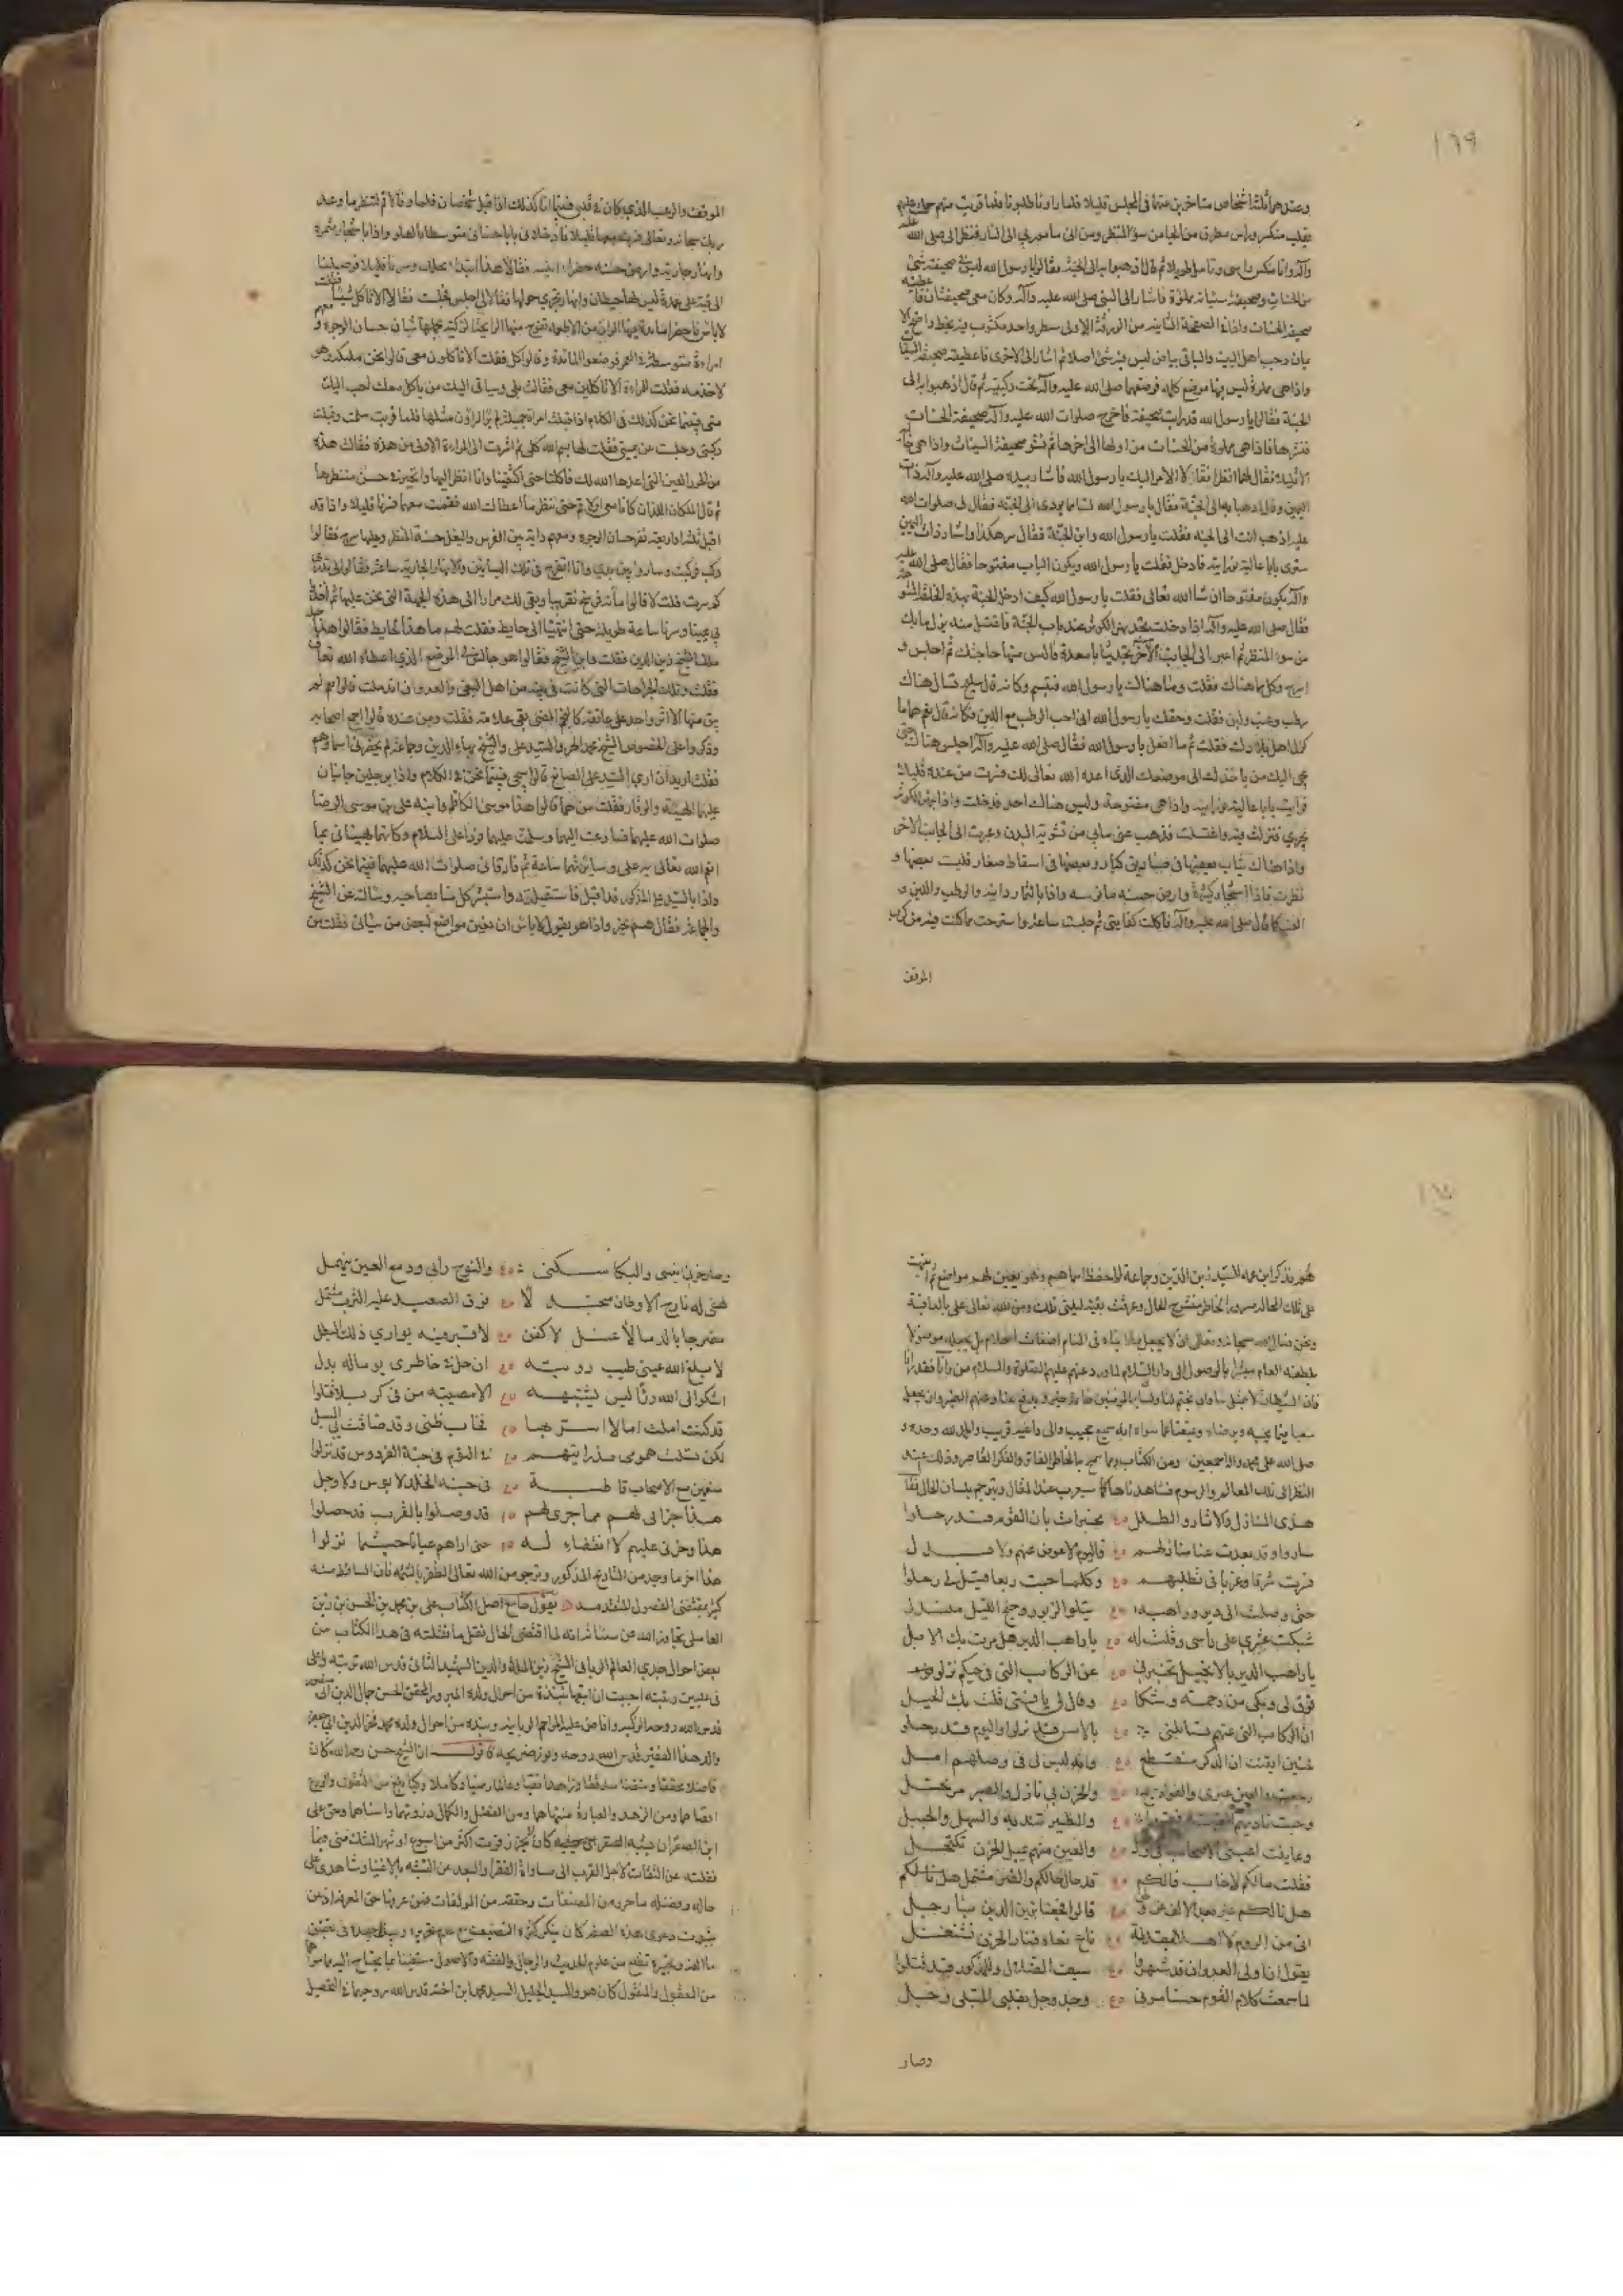 ١٦٩
وعنده ثلثة اشخاص متاخرين عنها في المجلس قليلا فلما راونا طلبونا فلما قربت منهم
بقلب منكسر وراس مطرق من الحيا من سوء المنظر ومن الى ما موري الى النار فنظر الى صلى الله عليه
وآله وانا منكس راسى وتامل طويلا ثم قال اذهبوا به الى الجنة فقالوا يا رسول الله ليس في صحيفته شئ
من الحسنات وصحيفة سيئاته مملوة فاشار الى النبي صلى الله عليه وآله وكان معى صحيفتان فاعطيته
صحيفة الحسنات واذا في الصفحة الثانية من الورقة الاولى سطر واحد مكتوب فيه بخط واضح
بيان وحب اهل البيت والباقي بياض ليس فيه شئ اصلا ثم اشار الى الاخرى فاعطيته صحيفة
واذا هى مملوة ليس فيها موضع كلمة فوضعهما صلى الله عليه وآله تحت ركبته ثم قال اذهبوا به الى
الجنة فقالوا يا رسول الله قد رايت صحيفته فاخرج صلوات الله عليه وآله صحيفة الحسنات
فنشرها فاذا هى مملوة من الحسنات من اولها الى اخرها ثم نشر صحيفة السيئات واذا هى
فقال لهما انظرا فقالا الامر اليك يا رسول الله فاشار بيده صلى الله عليه وآله ذات
اليمين وقال اذهبا به الى الجنة فقال يا رسول الله فقال لى صلوات الله
عليه اذهب انت الى الجنة فقلت يا رسول الله واين الجنة فقال سر هكذا واشار ذات اليمين
سترى بابا عالية فادخل فقلت يا رسول الله ويكون الباب مفتوحا فقال صلى الله عليه
وآله يكون مفتوحا ان شا الله تعالى فقلت يا رسول الله كيف ادخل الجنة بهذه الخلقة
فقال صلى الله عليه وآله اذا دخلت تجد نهر الكوثر عند باب الجنة فاغتسل منه يزل ما بك
من سوء المنظر ثم اعبر الى الجانب الآخر تجد ثيابا معدة فالبس منها حاجتك ثم اجلس و
استرح وكل ما هناك فقلت وما هناك يا رسول الله فتبسم وكانه قال هناك
رطب وعنب ولبن فقلت وحقك يا رسول الله انى احب الرطب مع اللبن فكانه قال نعم هما
كل اهل بلادك فقلت ثم ما افعل يا رسول الله فقال صلى الله عليه وآله اجلس هناك حتى
يجى اليك من ياخذك الى موضعك الذي اعده الله تعالى لك فسرت من عنده قليلا
فرايت بابا عالية واذا هى مفتوحة وليس هناك احد فدخلت واذا نهر الكوثر
يجري فنزلت فيه واغتسلت فذهب عنى ما بي من تشويه البدن وعبرت الى الجانب الاخر
واذا هناك ثياب بعضها في صناديق كبار وبعضها في اسقاط صغار فلبست بعضها و
نظرت فاذا اشجار كثيرة وارض حسنة مانوسه واذا بالثمار دانية والرطب واللبن و
العنب كما قال صلى الله عليه وآله فاكلت كفايتي ثم جلست ساعة واسترحت مما كنت فيه من كرب
الموقف
الموقف والرعب الذي كان في قلبي فبينما انا كذلك اذا اقبل شخصان وقالا قم لننظر ما وعد
ربك سبحانه وتعالى فسرت معهما قليلا فادخلانى بابا حسنا واذا باشجار مثمرة
وانهار جارية وارض حسنة خضراء فقالا هذا ابتداء محلك وسرنا قليلا فوصلنا
الى قبة على عمدة ليس لها حيطان وانهار تجري حولها فقالا لى اجلس فجلست فقالا الا تاكل شيئا فقلت
لا باس فاحضرا مائدة فيها الوان من الاطعمة تفوح منها الرايحة الزكية يحملها شبان حسان الوجوه و معهم
امراءة متوسطة العمر فوضعوا المائدة وقالوا كل فقلت الا تاكلون معى قالوا نحن ملئكة وهو
لا خدمه فقلت للمراءة الا تاكلين معى فقالت بلى وسياتى اليك من ياكل معك احب اليك
منى فبينما نحن كذلك في الكلام اذ اقبلت امراة جميلة لم ير الراؤن مثلها فلما قربت سلمت وقبلت
ركبتى وجلست عن يمينى فقلت لها بسم الله كلى ثم اشرت الى المراءة الاولى من هذه فقالت هذه
من الحور العين التى اعدها الله لك فاكلنا حتى اكتفينا وانا انظر اليها واتحير في حسن منظرها
ثم قال الملكان اللذان كانا معى اولا قم حتى ننظر ما اعطاك الله فقمت معهما فسرنا قليلا واذا قد
اقبل ثلثة او اربعة نفر حسان الوجوه ومعهم دابة بين الفرس والبغل حسنة المنظر وعليها سرج فقالوا
اركب فركبت وساروا بين يدي وانا اتفرج في تلك البساتين والانهار الجارية ساعة فقالوا لى تدرى
كم سرت قلت لا قالوا مائة فرسخ تقريبا وبقى لك مرادا الى هذه الجهة التى نحن عليها ثم اخذوا
في يميننا وسرنا ساعة طويلة حتى انتهينا الى حايط فقلت لهم ما هذا الحايط فقالوا هذا
ملك الشيخ زين الدين فقلت واين الشيخ فقالوا هو جالس في الموضع الذي اعطاه الله تعالى
فقلت وتلك الجراحات التى كانت في بدنه من اهل البغى والعدوان اندملت قالوا نعم لم
يبق منها الا اثر واحد على عاتقه كالنجم المضى بقى علامة فقلت ومن عنده قالوا اصحابه
وذكروا على الخصوص الشيخ محمد الحر والسيد على والشيخ بهاء الدين وجماعة لم يحضرنى اسماؤهم
فقلت اريد ان ارى السيد على الصائغ قالوا سيجى فبينما نحن في الكلام واذا برجلين جاثيان
عليهما الهيبة والوقار فقلت من هما قالوا هذا موسى الكاظم وابنه على بن موسى الرضا
صلوات الله عليهما فسارعت اليهما وسلمت عليهما فردا على السلام وكانهما يهنيانى بما
انعم الله تعالى به على وسايرتهما ساعة ثم فارقانى صلوات الله عليهما فبينما نحن كذلك
واذا بالسيد على المذكور قد اقبل فاستقبلته واستبشر كل منا بصاحبه وسالته عن الشيخ
والجماعة فقال هم بخير واذا هو يقول لا باس ان نعين مواضع لبعض من سياتى فقلت من
هم فذكر ابن عمه السيد زين الدين وجماعة لا احفظ اسماءهم وهو يعين لهم مواضع ثم انتبهت
على تلك الحالة مسرور الخاطر منشرح الحال وعرفت بقية ليلتى تلك ومن الله تعالى على بالعافية
ونحن نسال الله سبحانه وتعالى ان لا يجعل ما رايناه في المنام اضغاث احلام بل يجعله موصولا
بلطفه العام مبشرا بالوصول الى دار السلام لما ورد عنهم عليهم الصلوة والسلام من رآنا فقد رآنا
فان الشيطان لا يتمثل بنا وان يختم لنا ولساير المؤمنين خاتمة خير ويدفع عنا وعنهم الضير وان يجعل
سعينا فيما يحبه ويرضاه وغيبتنا عما سواه انه سميع مجيب والى داعيه قريب والحمد لله وحده و
صلى الله على محمد وآله اجمعين ومن الكتاب وبما سمح به الخاطر الفاتر والفكر القاصر وذلك عند
النظر الى تلك المعالم والرسوم فشاهدنا حالا سيعرب عند المقال ويترجم بلسان الحال فقا
هذى المنازل والاثار والطلل مخبرات بان القوم قد رحلوا
ساروا وقد بعدت عنا منازلهم فاليوم لا عوض عنهم ولا بدل
فسرت شرقا وغربا فى تطلبهم وكلما جبت ربعا قيل لى رحلوا
حتى وصلت الى دير وراهبه يتلوا الزبور وجنح الليل منسدل
شبكت عشري على راسى وقلت له يا راهب الدير هل مرت بك الابل
يا راهب الدير بالانجيل تخبرنى عن الركائب التى فى حيكم نزلوا
فرق لى وبكى من رحمة وشكا وقال لى يا فتى قلت بك الحيل
ان الركائب التى عنهم تسائلنى بالامس قد نزلوا واليوم قد رحلوا
فحين ايقنت ان الذكر منقطع وانه ليس لى فى وصلهم امل
رجعت والعين عبرى والفؤاد والحزن بي نازل والصبر مرتحل
وجبت ناديهم والطير تندبه والسهل والجبل
وعاينت عينى الاصحاب والعين منهم بميل الحزن تكتحل
فقلت مالكم لا خاب فالكم قد حال حالكم والضر مشتمل
هل نالكم غير بعد الالف عن قالوا فجعنا بزين الدين يا رجل
اتى من الروم لا اهلا بمقدمه ناع نعاه فنار الحزن تشتعل
يقول ان اولى العدوان قد شهروا سيف الضلال وللمذكور قد قتلوا
لما سمعت كلام القوم حسا مرنى وجد وجل بقلبى المبتلى وجل
وصار
وصار حزنى انيسى والبكا سكنى والنوح رابى ودمع العين ينهمل
لهفى له نازح الاوطان منجدلا فوق الصعيد عليه الترب مشتمل
مضرجا بالدما لا غسل لا كفن لا قبر فيه يوارى ذلك البطل
لا بلغ الله عينى طيب رؤيته ان حل في خاطرى يوما له بدل
اشكو الى الله رزءا ليس يشبهه الا مصيبة من فى كربلا قتلوا
قد كنت املت امالا استر بها فخاب ظنى وقد ضاقت بى السبل
لكن تسلت همومى مذ رايتهم في النوم فى جنة الفردوس قد نزلوا
منعمين مع الاصحاب قاطبة فى جنة الخلد لا بوس ولا وجل
هذا جزائى لهم مما جرى لهم قد وصلوا بالقرب قد حصلوا
هذا وحزنى عليهم لا انقضاء له حتى اراهم عيانا حيثما نزلوا
هذا اخر ما وجد من التاريخ المذكور ونرجو من الله تعالى الظفر بالتتمة فان الساقط منه
كثير بمقتضى الفصول المتقدمة يقول جامع اصل الكتاب على بن محمد بن الحسن بن زين
العاملى تجاوز الله عن سيئاته انه لما اقتضى الحال نقل ما نقلته فى هذا الكتاب من
بعض احوال جدى العالم الربانى الشيخ زين الملة والدين الشهيد الثانى قدس الله تربته واعلى
فى عليين رتبته احببت ان اتبعها بنبذة من احوال ولده المبرور المحقق الحسن جمال الدين ابى منصور
قدس الله روحه الزكية وافاض عليه المراحم الربانية ونبذة من احوال ولده محمد فخر الدين ابى جعفر
والد هذا الفقير قدس الله روحه ونور ضريحه فاقول ان الشيخ حسن رحمه الله كان
فاضلا محققا ومتقنا مدققا وزاهدا تقيا وعالما رضيا وكاملا ذكيا بلغ من التقوى والورع
اقصاهما ومن الزهد والعبادة منتهاهما ومن الفضل والكمال ذروتهما واسناهما
كان لا يحرز قوت اكثر من اسبوع او شهر الشك منى فيما
نقلته عن الثقات لاجل القرب الى مساواة الفقراء والبعد عن التشبه بالاغنيا وشاهدى على
حاله وفضله ما حرره من المصنفات وحققه من المؤلفات
كان ينكر كثرة التصنيف مع عدم تحريره ويبذل جهده فى تحقيق
ما الفه وتحبيره تطلع من علوم الحديث والرجال والفقه والاصول مستغنيا عما يحتاج اليه
من المعقول والمنقول كان هو والسيد الجليل السيد محمد ابن اخته قدس الله روحيهما في التحصيل